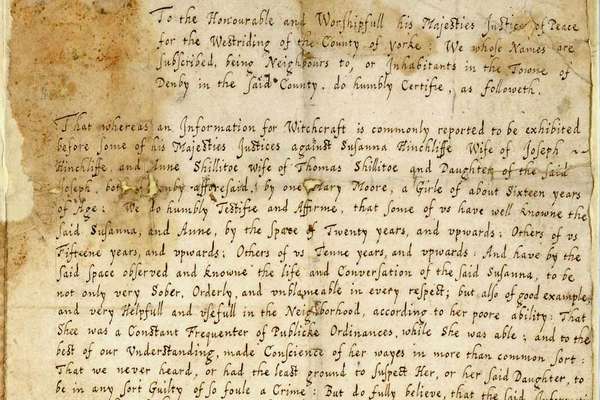 To the Honourable and Worshipfull his Majesties Justices of Peace
for the Westriding of the County of Yorke: We whose Names are
subscribed, being Neighbours to, or Inhabitants in the Towne of
Denby in the said County, do humbly Certifie, as followeth.
That whereas an Information for Witchcraft is commonly reported to be exhibited
before some of his Majesties Justices against Susanna Hinchliffe Wife of Joseph
Hinchliffe, and Anne Shillitoe Wife of Thomas Shillitoe and Daughter of the said
Joseph, both Denby afforesaid, by one Mary Moore, a Girle of about Sixteen years
of Age: We do humbly Testifie and Affirme, that some of vs have well knowne the
said Susanna, and Anne, by the space of Twenty years, and upwards: Others of vs
Fifteene years, and upwards: Others of vs Tenne years, and upwards: And have by the
said space observed and knowne the life and Conversation of the said Susanna, to be
not only very Sober, Orderly, and unblameable in every respect; but also of good example,
and very Helpfull and vsefull in the Neighborhood, according to her poore ability: That
Shee was a Constant Frequenter of Publicke Ordinances, while She was able; and to the
best of our Understanding, made Conscience of her wayes in more than common sort:
That we never heard, or had the least ground to suspect Her, or her said Daughter, to
be in any sort Guilty of so foule a Crime: But do fully believe, that the said